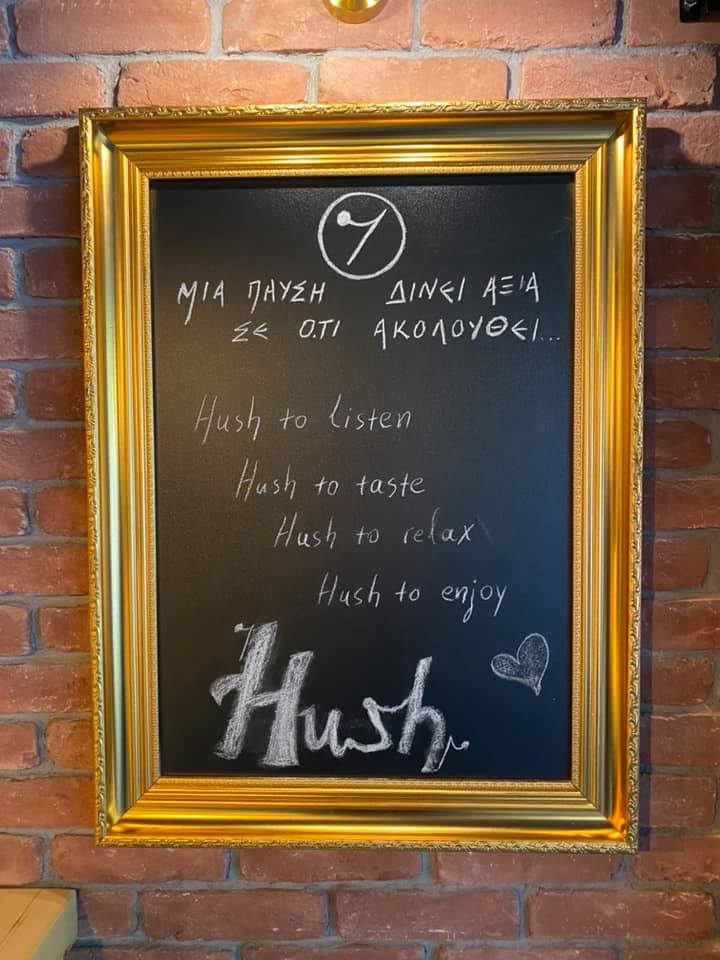 ΜΙΑ ΠΑΥΣΗ ΔΙΝΕΙ ΑΞΙΑ
ΣΕ Ο.ΤΙ ΑΚΟΛΟΥΘΕΙ...
Hush to listen
Hush to taste
Hush to relax
Hush to enjoy
Hush